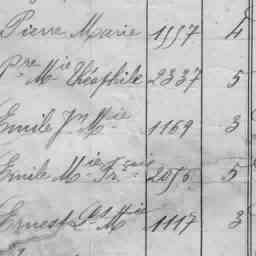 Pierre Marie 1157 4
Pre Mie Théophile 2337 5
Emile Jn Mie 1169 3
Emile Mie Frçois 2056 5
Ernest Ls Mie 1117 3